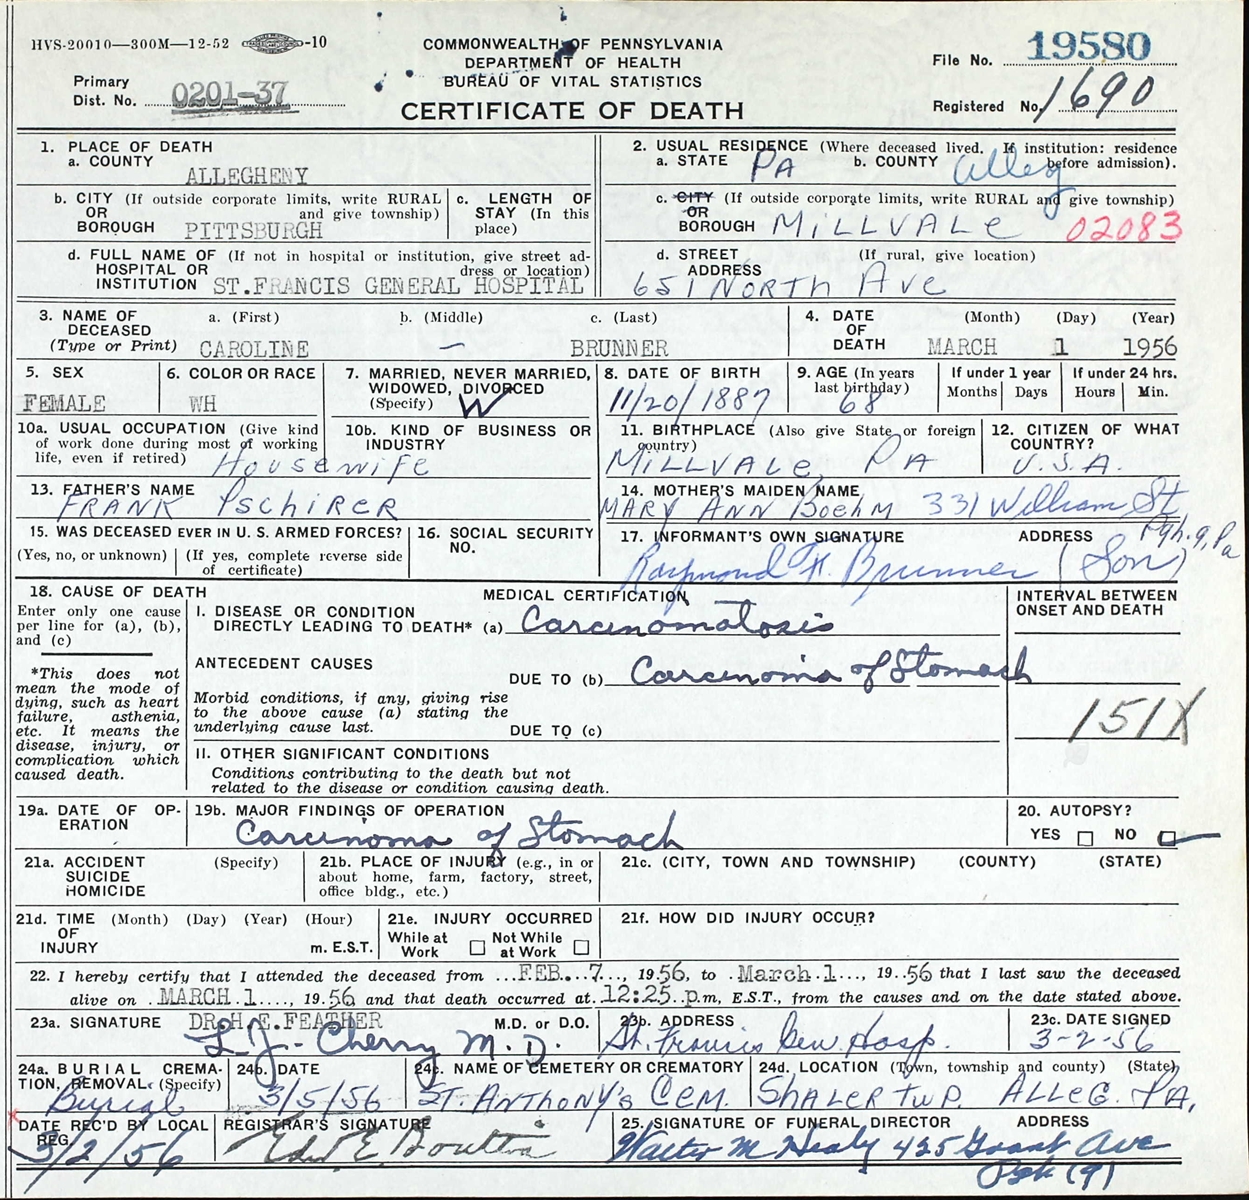 HVS-20010—300M—12-52 -10
COMMONWEALTH OF PENNSYLVANIA
DEPARTMENT OF HEALTH
BUREAU OF VITAL STATISTICS
CERTIFICATE OF DEATH
File No. 19580
Primary
Dist. No. 0201-37
Registered No. 1690
1. PLACE OF DEATH
a. COUNTY
ALLEGHENY
2. USUAL RESIDENCE (Where deceased lived. If institution: residence
a. STATE PA b. COUNTY Alleg before admission).
b. CITY (If outside corporate limits, write RURAL
OR and give township)
BOROUGH PITTSBURGH
c. LENGTH OF
STAY (In this
place)
c. CITY (If outside corporate limits, write RURAL and give township)
OR
BOROUGH MILLVALE 02083
d. FULL NAME OF (If not in hospital or institution, give street ad-
HOSPITAL OR dress or location)
INSTITUTION ST.FRANCIS GENERAL HOSPITAL
d. STREET (If rural, give location)
ADDRESS
651 NORTH AVE
3. NAME OF a. (First) b. (Middle) c. (Last)
DECEASED
(Type or Print) CAROLINE — BRUNNER
4. DATE (Month) (Day) (Year)
OF
DEATH MARCH 1 1956
5. SEX
FEMALE
6. COLOR OR RACE
WH
7. MARRIED, NEVER MARRIED,
WIDOWED, DIVORCED
(Specify) W
8. DATE OF BIRTH
11/20/1887
9. AGE (In years
last birthday)
68
If under 1 year
Months Days
If under 24 hrs.
Hours Min.
10a. USUAL OCCUPATION (Give kind
of work done during most of working
life, even if retired) Housewife
10b. KIND OF BUSINESS OR
INDUSTRY
11. BIRTHPLACE (Also give State or foreign
country)
MILLVALE, PA
12. CITIZEN OF WHAT
COUNTRY?
U.S.A.
13. FATHER'S NAME
FRANK PSCHIRER
14. MOTHER'S MAIDEN NAME
MARY ANN BOEHM 331 William St
Pgh. 9, Pa
15. WAS DECEASED EVER IN U. S. ARMED FORCES?
(Yes, no, or unknown) (If yes, complete reverse side
of certificate)
16. SOCIAL SECURITY
NO.
17. INFORMANT'S OWN SIGNATURE ADDRESS
Raymond F. Brunner (Son)
18. CAUSE OF DEATH
Enter only one cause
per line for (a), (b),
and (c)
*This does not
mean the mode of
dying, such as heart
failure, asthenia,
etc. It means the
disease, injury, or
complication which
caused death.
MEDICAL CERTIFICATION
I. DISEASE OR CONDITION
DIRECTLY LEADING TO DEATH* (a) Carcinomatosis
ANTECEDENT CAUSES
DUE TO (b) Carcinoma of Stomach
Morbid conditions, if any, giving rise
to the above cause (a) stating the
underlying cause last.
DUE TO (c)
II. OTHER SIGNIFICANT CONDITIONS
Conditions contributing to the death but not
related to the disease or condition causing death.
INTERVAL BETWEEN
ONSET AND DEATH
151X
19a. DATE OF OP-
ERATION
19b. MAJOR FINDINGS OF OPERATION
Carcinoma of Stomach
20. AUTOPSY?
YES NO
21a. ACCIDENT (Specify)
SUICIDE
HOMICIDE
21b. PLACE OF INJURY (e.g., in or
about home, farm, factory, street,
office bldg., etc.)
21c. (CITY, TOWN AND TOWNSHIP) (COUNTY) (STATE)
21d. TIME (Month) (Day) (Year) (Hour)
OF
INJURY m. E.S.T.
21e. INJURY OCCURRED
While at Not While
Work at Work
21f. HOW DID INJURY OCCUR?
22. I hereby certify that I attended the deceased from FEB. 7, 1956, to March 1, 1956 that I last saw the deceased
alive on MARCH 1, 1956 and that death occurred at 12:25 p.m, E.S.T., from the causes and on the date stated above.
23a. SIGNATURE DR.H.E.FEATHER M.D. or D.O.
L. J. Cherry M.D.
23b. ADDRESS
St. Francis Gen Hosp.
23c. DATE SIGNED
3-2-56
24a. BURIAL CREMA-
TION, REMOVAL (Specify)
Burial
24b. DATE
3/5/56
24c. NAME OF CEMETERY OR CREMATORY
ST. ANTHONY'S CEM.
24d. LOCATION (Town, township and county) (State)
SHALER TWP. ALLEG. PA.
x
DATE REC'D BY LOCAL
REG.
3/2/56
REGISTRAR'S SIGNATURE
25. SIGNATURE OF FUNERAL DIRECTOR ADDRESS
Walter M Healy 425 Grant Ave
Pgh (9)